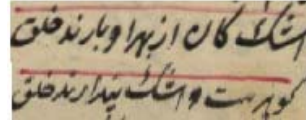 اشک کان از بهر او بارند خلق
گوهرست و اشک پندارند خلق